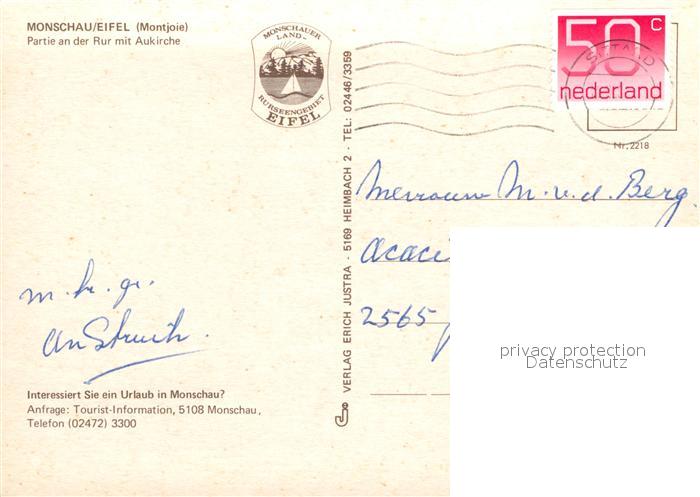 MONSCHAU/EIFEL (Montjoie)
Partie an der Rur mit Aukirche
MONSCHAUER
LAND-
RURSEENGEBIET
EIFEL
50 c
nederland
SITTARD
Nr. 2218
VERLAG ERICH JUSTRA · 5169 HEIMBACH 2 · TEL: 02446/3359
Mevrouw M. v. d. Berg.
Acaci
2565
m. hr. gr.
Interessiert Sie ein Urlaub in Monschau?
Anfrage: Tourist-Information, 5108 Monschau,
Telefon (02472) 3300
privacy protection
Datenschutz